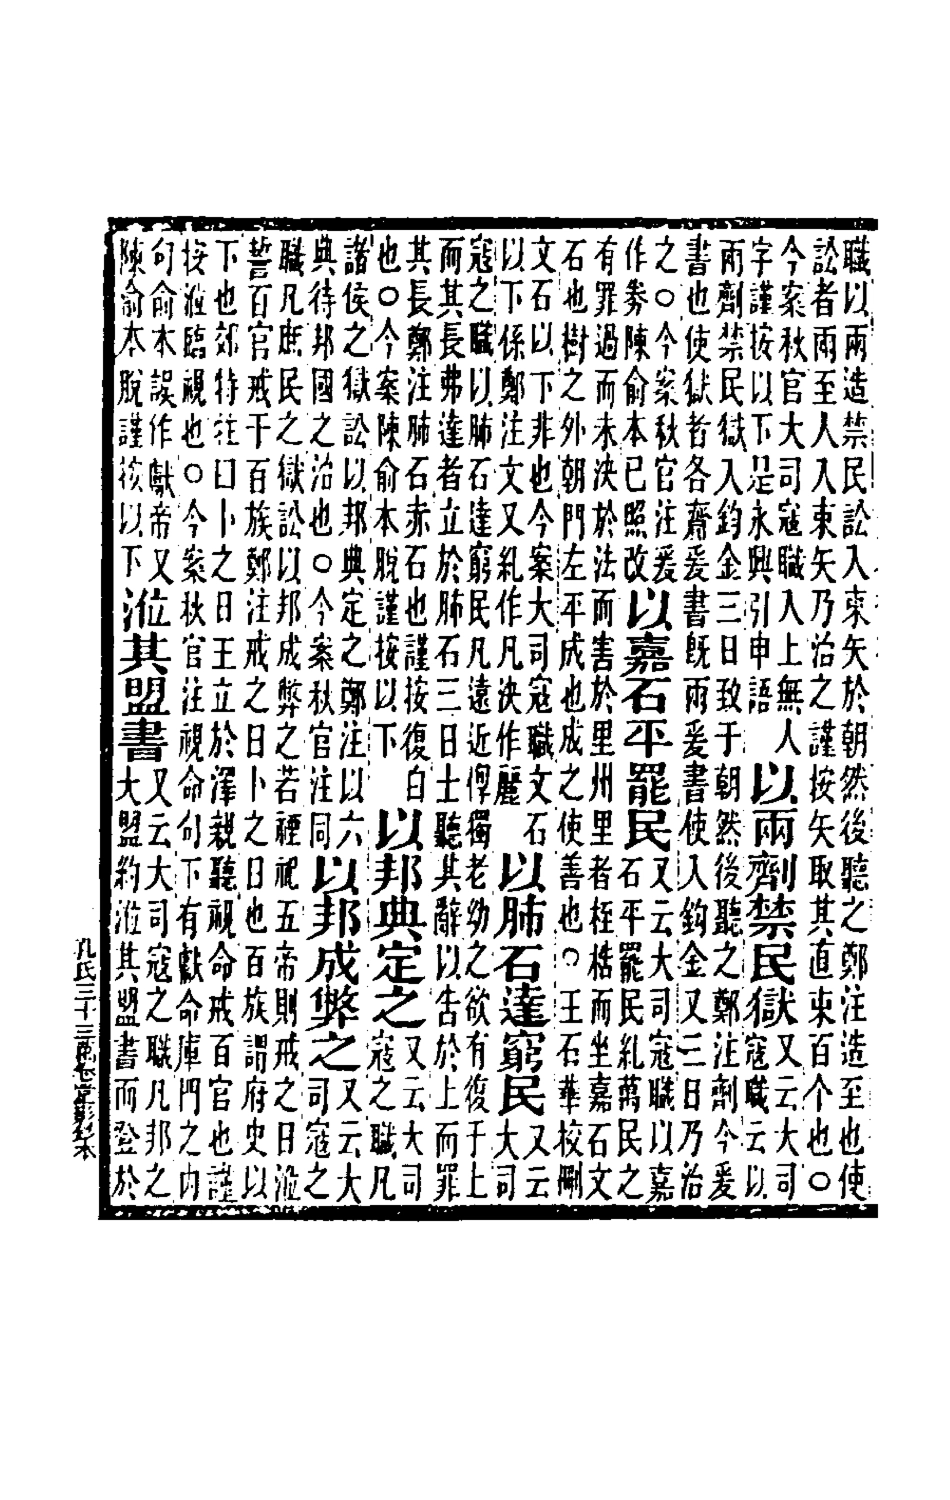 職以兩造禁民訟入束矢於朝然後聽之鄭注造至也使
訟者兩至人入束矢乃治之謹按矢取其直束百个也○
今案秋官大司寇職入上無人
字謹按以下是永興引申語
以兩劑禁民獄
又云大司
寇職云以
兩劑禁民獄入鈞金三日致于朝然後聽之鄭注劑今爰
書也使獄者各齎爰書旣兩爰書使入鈞金又三日乃治
之○今案秋官注爰
作劵陳俞本已照改
以嘉石平罷民
又云大司寇職以嘉
石平罷民糺萬民之
有罪過而未決於法而害於里州里者桎梏而坐嘉石文
石也樹之外朝門左平成也成之使善也○王石華校刪
文石以下非也今案大司寇職文石
以下係鄭注文又糺作凡決作麗
以肺石達窮民
又云
大司
寇之職以肺石達窮民凡遠近惸獨老幼之欲有復于上
而其長弗達者立於肺石三日士聽其辭以告於上而罪
其長鄭注肺石赤石也謹按復白
也○今案陳俞本脫謹按以下
以邦典定之
又云大司
寇之職凡
諸侯之獄訟以邦典定之鄭注以六
典待邦國之治也○今案秋官注同
以邦成弊之
又云大
司寇之
職凡庶民之獄訟以邦成弊之若禋祀五帝則戒之日涖
誓百官戒于百族鄭注戒之日卜之日也百族謂府史以
下也郊特牲曰卜之日王立於澤親聽視命戒百官也謹
按涖臨視也○今案秋官注視命句下有獻命庫門之內
句俞本誤作獻帝又
陳俞本脫謹按以下
涖其盟書
又云大司寇之職凡邦之
大盟約涖其盟書而登於
孔氏三十三萬卷堂影鈔本